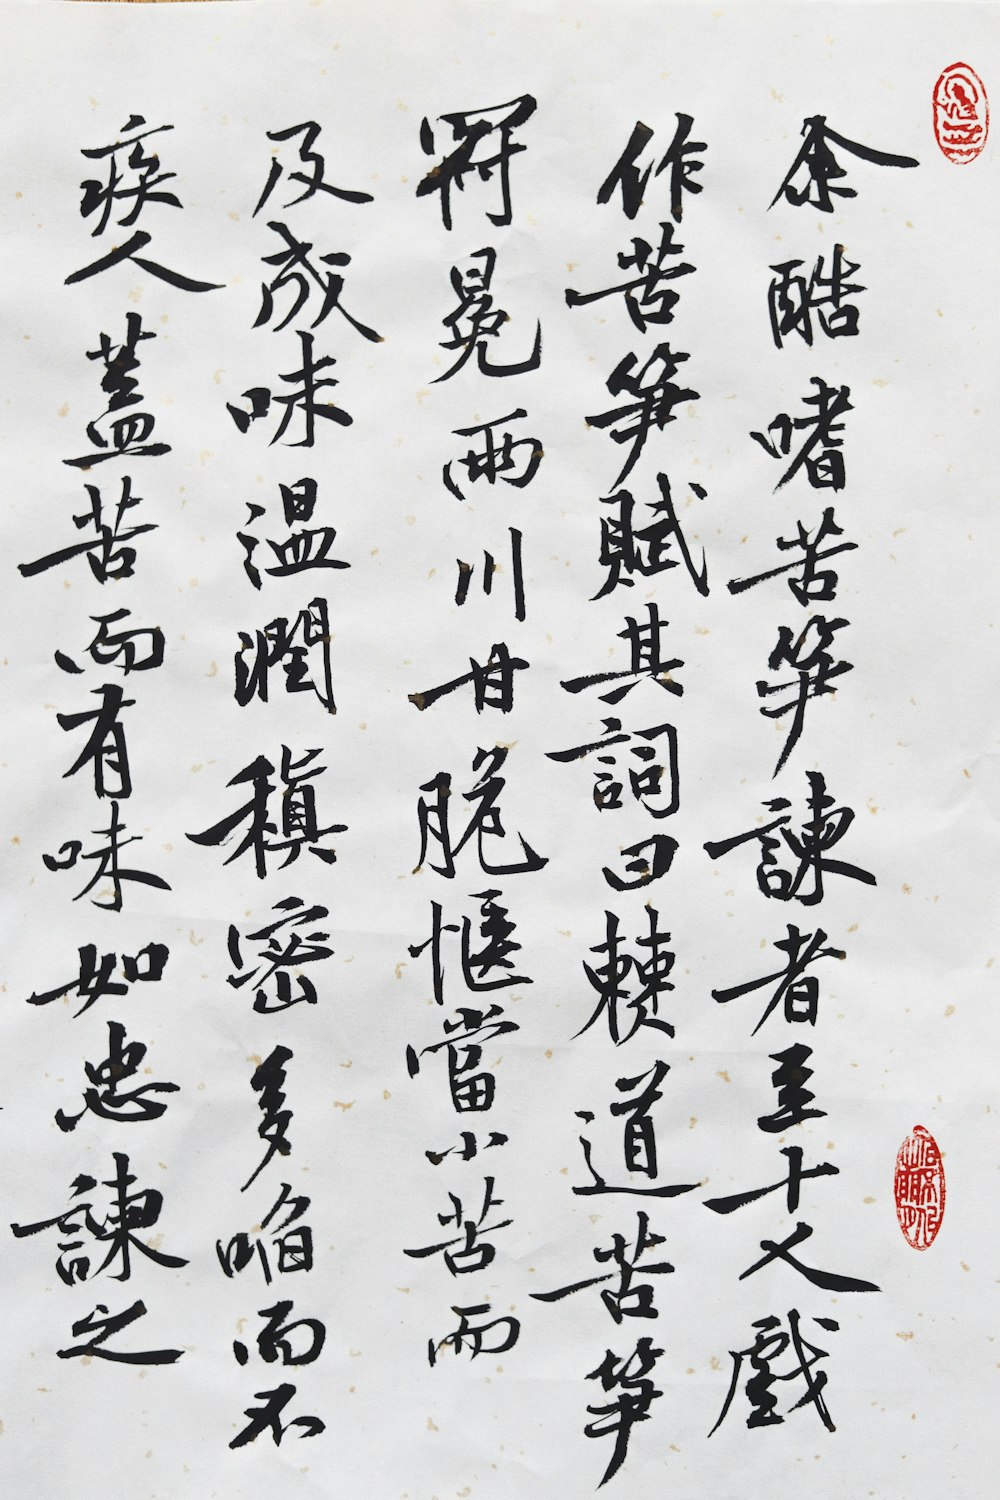 余酷嗜苦笋諫者至十人戲
作苦笋賦其詞曰僰道苦笋
冠冕兩川甘脆愜噹小苦而
及成味溫潤稹密多啗而不
疾人蓋苦而有味如忠諫之